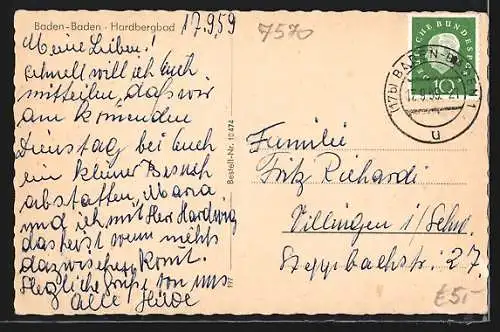 Baden-Baden - Hardbergbad
17.9.59
Meine Lieben!
Schnell will ich Euch
mitteilen, daß wir
am kommenden
Dienstag bei Euch
ein kleiner Besuch
abstatten, Maria
und ich mit Herr Harding
das heist wenn nichts
dazwischen komt.
Herzliche Grüße von uns
alle Hilde
Bestell-Nr. 10474
7570
DEUTSCHE BUNDESPOST
10
(17b) BADEN-BADEN 1
17.9.59.-21
u
Familie
Fritz Richardi
Villingen i/Schw.
Steppbachstr 27.
€5,-